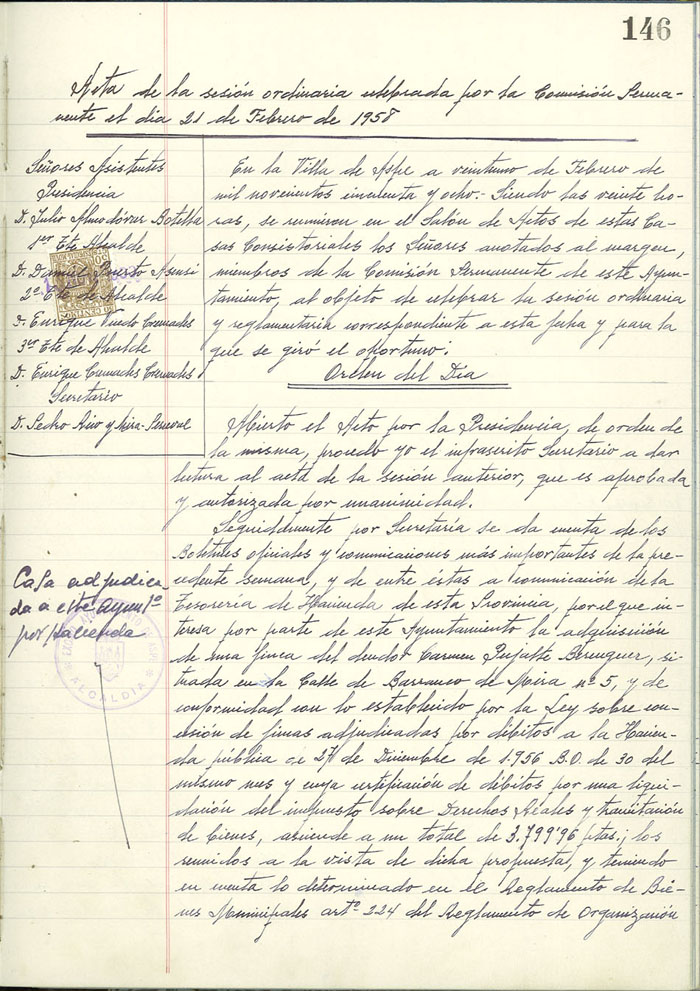 146
Acta de la sesión ordinaria celebrada por la Comisión Perma-
nente el dia 21 de Febrero de 1958
Señores Asistentes
Presidencia
D. Julio Almodóvar Botella
1er Tte Alcalde
D. Daniel Puerto Asensi
2º Tte de Alcalde
D. Enrique Cremades
3er Tte de Alcalde
D. Enrique Cremades Cremades
Secretario
D. Pedro y Mira-Perceval
En la Villa de Aspe a veintiuno de Febrero de
mil novecientos cincuenta y ocho.- Siendo las veinte ho-
ras, se reunieron en el Salón de Actos de estas Ca-
sas Consistoriales los Señores anotados al margen,
miembros de la Comisión Permanente de este Ayun-
tamiento, al objeto de celebrar la sesión ordinaria
y reglamentaria correspondiente a esta fecha y para la
que se giró el oportuno:
Orden del Día
Abierto el Acto por la Presidencia, de orden de
la misma, procedo yo el infrascrito Secretario a dar
lectura al acta de la sesión anterior, que es aprobada
y autorizada por unanimidad.
Seguidamente por Secretaría se da cuenta de los
Boletines oficiales y comunicaciones más importantes de la pre-
cedente semana, y de entre éstas a comunicación de la
Tesorería de Hacienda de esta Provincia, por el que in-
teresa por parte de este Ayuntamiento la adquisición
de una finca del deudor Carmen Pujalte Berenguer, si-
tuada en la Calle de Barranco de Mira nº 5, y de
conformidad con lo establecido por la Ley sobre con-
cesión de fincas adjudicadas por débitos a la Hacien-
da pública de 27 de Diciembre de 1.956 B.O. de 30 del
mismo mes y cuya certificación de débitos por una liqui-
dación del impuesto sobre Derechos Reales y
de bienes, asciende a un total de 3.799'96 ptas.; los
reunidos a la vista de dicha propuesta, y teniendo
en cuenta lo determinado en el Reglamento de Bie-
nes Municipales artº 224 del Reglamento de Organización
Casa adjudica-
da a este Ayuntº
por hacienda
ALCALDIA